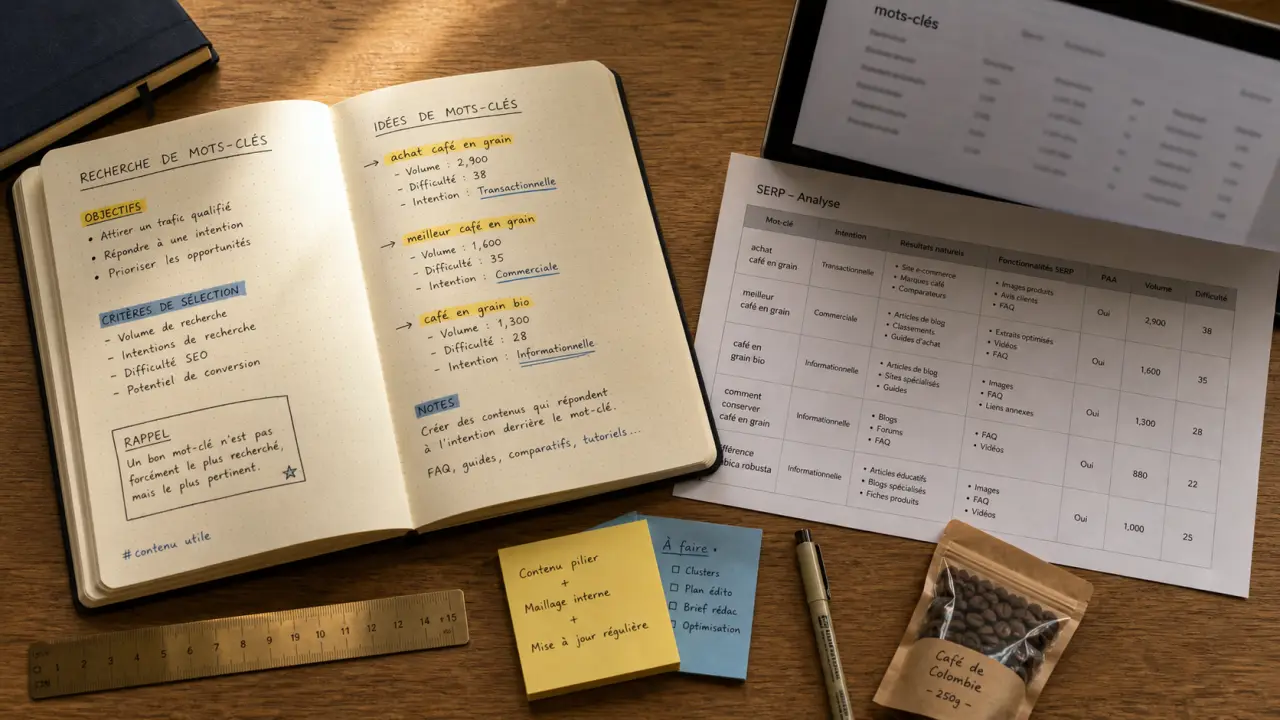 RECHERCHE DE MOTS-CLÉS
OBJECTIFS
• Attirer un trafic qualifié
• Répondre à une intention
• Prioriser les opportunités
CRITÈRES DE SÉLECTION
- Volume de recherche
- Intentions de recherche
- Difficulté SEO
- Potentiel de conversion
RAPPEL
Un bon mot-clé n'est pas
forcément le plus recherché,
mais le plus pertinent.
#contenu utile
IDÉES DE MOTS-CLÉS
→ achat café en grain
- Volume : 2,900
- Difficulté : 38
- Intention : Transactionnelle
→ meilleur café en grain
- Volume : 1,600
- Difficulté : 35
- Intention : Commerciale
→ café en grain bio
- Volume : 1,300
- Difficulté : 28
- Intention : Informationnelle
NOTES
Créer des contenus qui répondent
à l'intention derrière le mot-clé.
FAQ, guides, comparatifs, tutoriels...
mots-clés
SERP – Analyse
Mot-clé Intention Résultats naturels Fonctionnalités SERP PAA Volume Difficulté
achat
café en grain
Transactionnelle
• Site e-commerce
• Marques café
• Comparateurs
• Images produits
• Avis clients
• FAQ
Oui
2,900
38
meilleur
café en grain
Commerciale
• Articles de blog
• Classements
• Guides d'achat
• Extraits optimisés
• Vidéos
• FAQ
Oui
1,600
35
café en
grain bio
Informationnelle
• Articles de blog
• Sites spécialisés
• Guides
• Images
• FAQ
• Liens annexes
Oui
1,300
28
comment
conserver
café en grain
Informationnelle
• Blogs
• Forums
• FAQ
• FAQ
• Vidéos
Oui
880
22
fférence
bica robusta
Informationnelle
• Articles éducatifs
• Blogs spécialisés
• Fiches produits
• Images
• FAQ
• Vidéos
Oui
1,000
25
Contenu pilier
+
Maillage interne
+
Mise à jour régulière
À faire •
☐ Clusters
☐ Plan édito
☐ Brief rédac
☐ Optimisation
Café de
Colombie
- 250g -